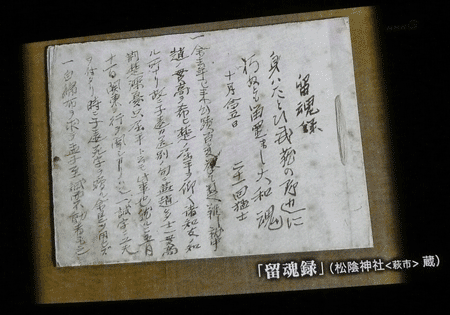 留魂録
身ハたとひ武蔵の野辺に
朽ぬとも留置まし大和魂
十月念五日
二十一回猛士
一 余去年已来心蹟百変挙て数へ難し就中
趙の貫高を希ひ楚の屈平を仰く諸知友の知
ル所なり故ニ子遠か送別の句ニ燕趙多士一貫高
荊楚深憂只屈平と云も此事也然るニ五月
十一日関東の行を聞しよりハ又一の誠字ニ工夫
を付たり時ニ子遠死字を贈る余是を用ひす
一 白綿布を求て孟子至誠
「留魂録」（松陰神社<萩市> 蔵）